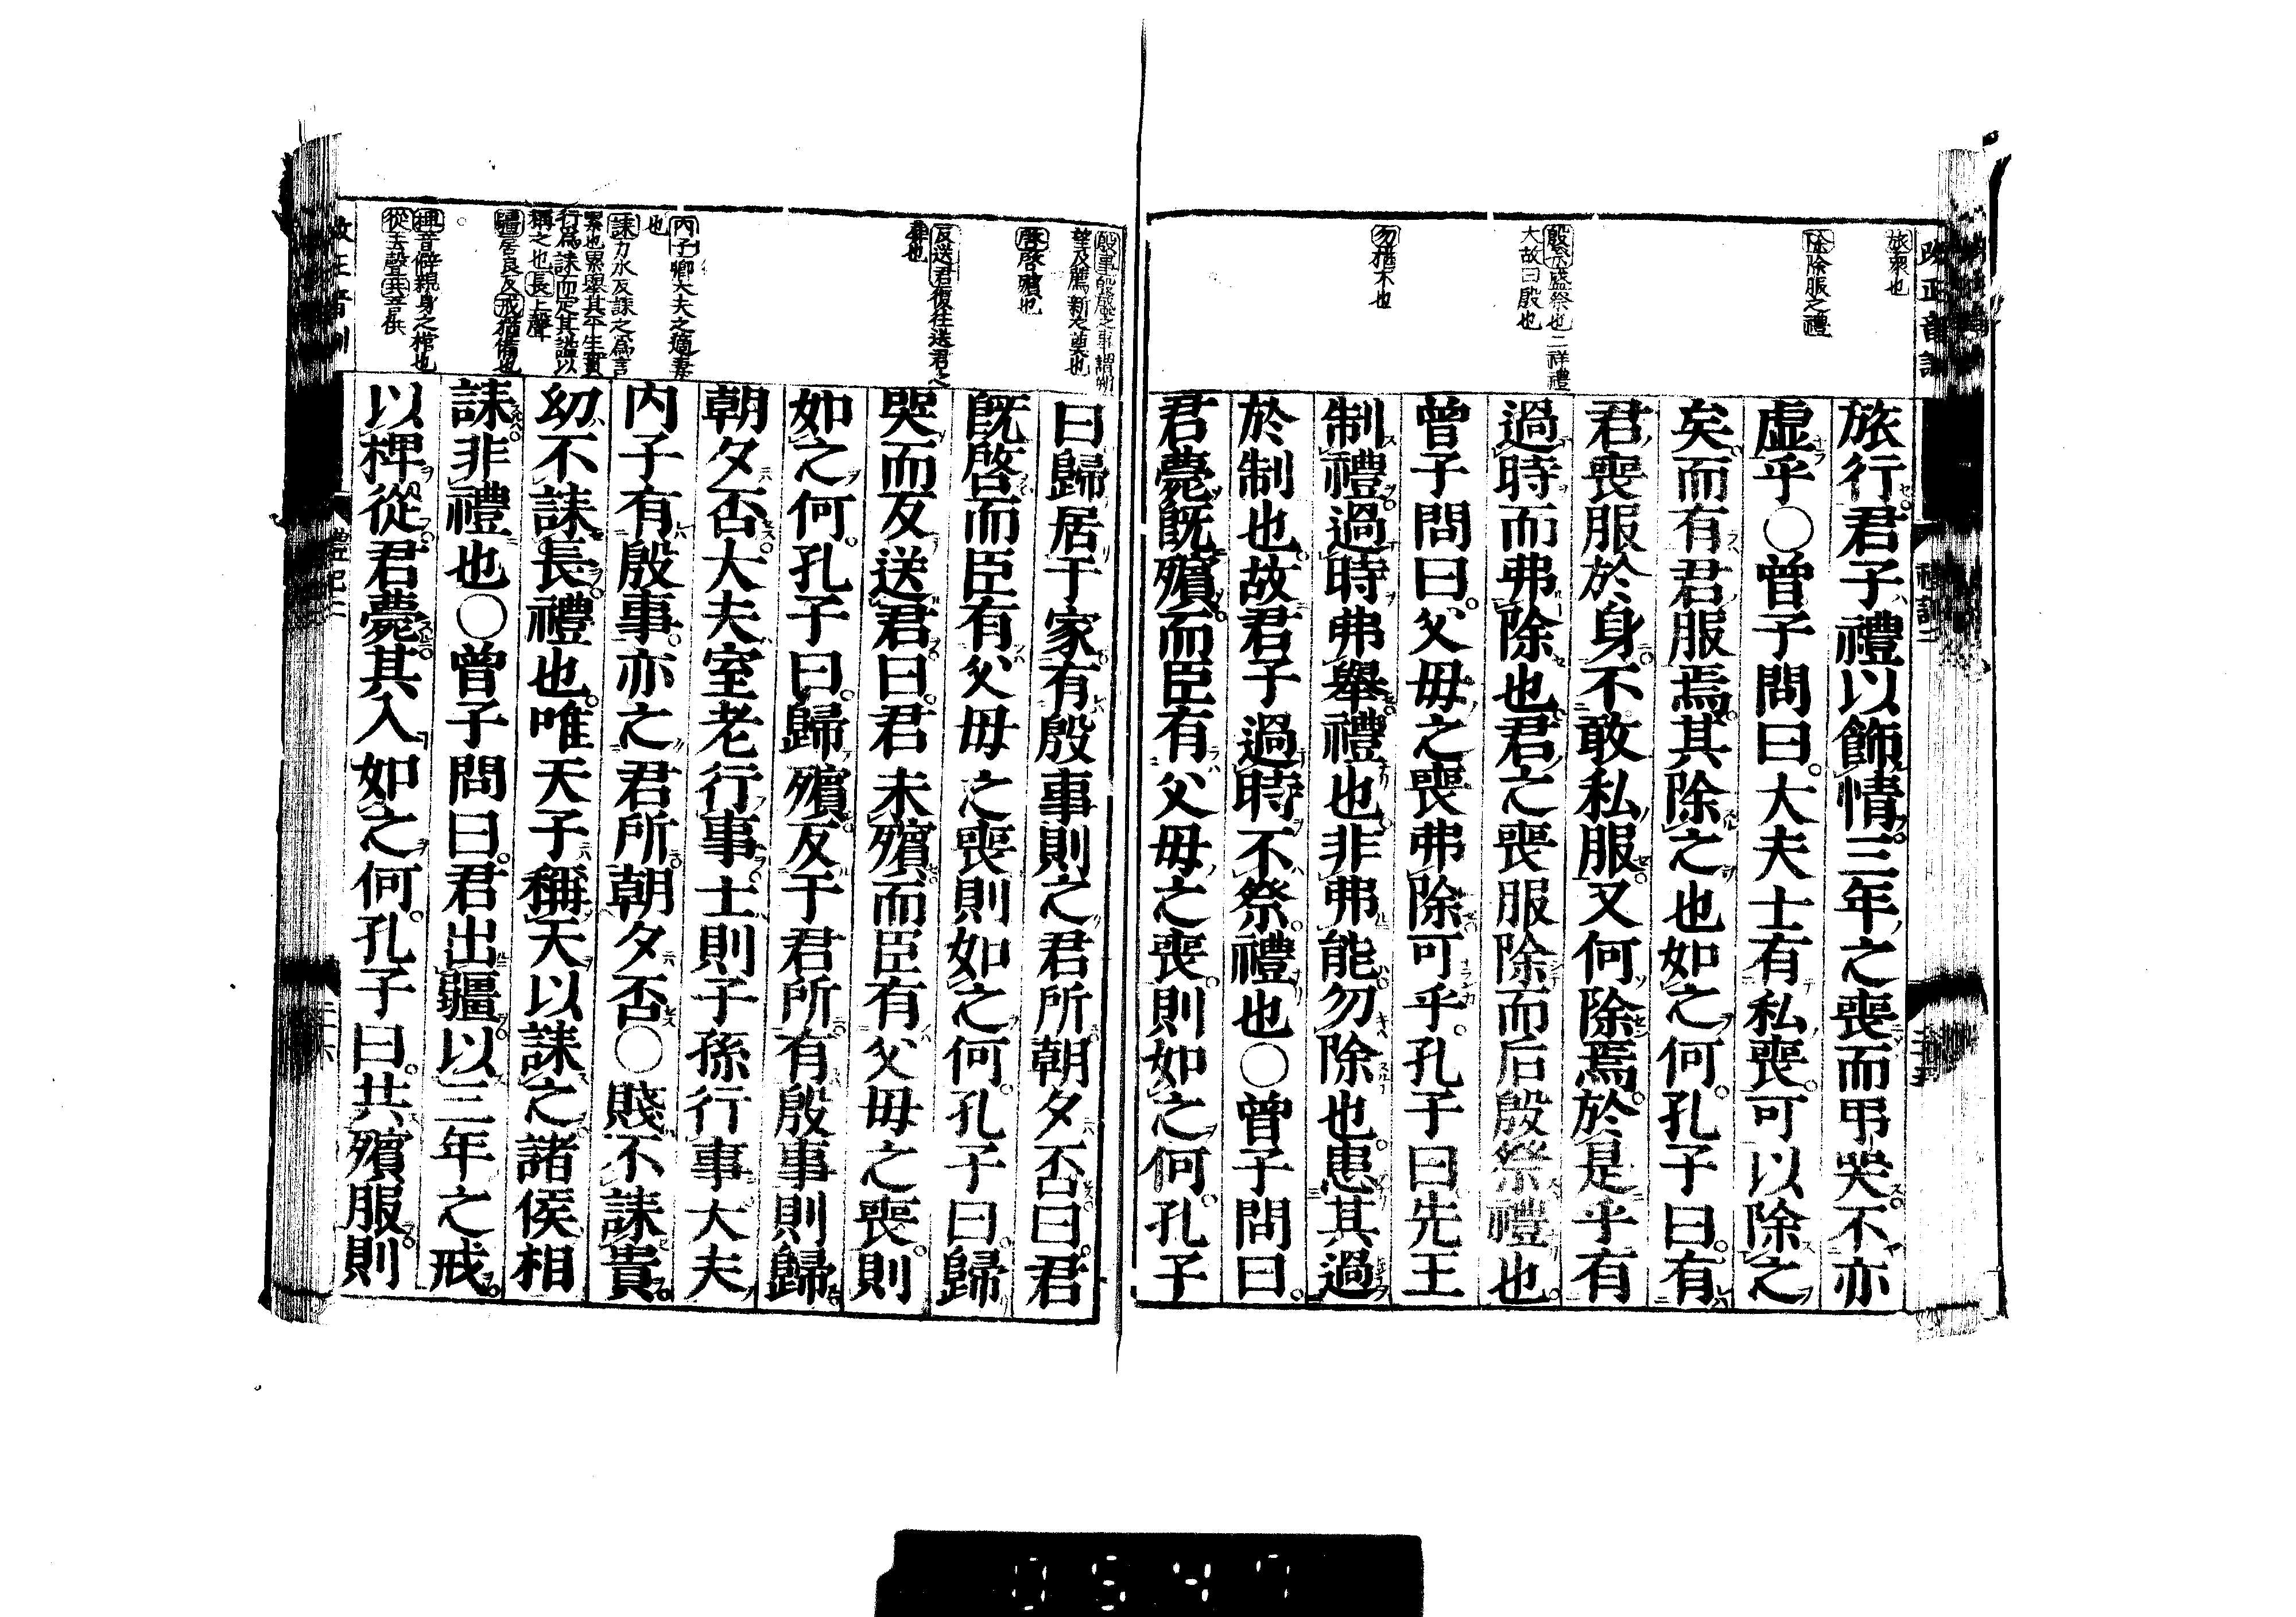 旅衆也
除除服之禮
殷祭盛祭也二祥禮
大故曰殷也
勿猶不也
旅行君子禮以飾情三年之喪而弔哭不亦
虛乎○曾子問曰大夫士有私喪可以除之
矣而有君服焉其除之也如之何孔子曰有
君喪服於身不敢私服又何除焉於是乎有
過時而弗除也君之喪服除而后殷祭禮也
曾子問曰父毋之喪弗除可乎孔子曰先王
制禮過時弗舉禮也非弗能勿除也患其過
於制也故君子過時不祭禮也○曾子問曰
君薨旣殯而臣有父毋之喪則如之何孔子
望及薦新之奠也
啓啓殯也
反送君復往送君之
葬也
內子卿大夫之適妻
也
誄力水反誄之爲言
累也累舉其平生實
行爲誄而定其諡以
稱之也長上聲
疆居良反戒猶備也
椑音僻親身之棺也
從去聲共音供
曰歸居于家有殷事則之君所朝夕否曰君
旣啓而臣有父毋之喪則如之何孔子曰歸
哭而反送君曰君未殯而臣有父毋之喪則
如之何孔子曰歸殯反于君所有殷事則歸
朝夕否大夫室老行事士則子孫行事大夫
內子有殷事亦之君所朝夕否○賤不誄貴
幼不誄長禮也唯天子稱天以誄之諸侯相
誄非禮也○曾子問曰君出疆以三年之戒
以椑從君薨其入如之何孔子曰共殯服則
禮記二
0547